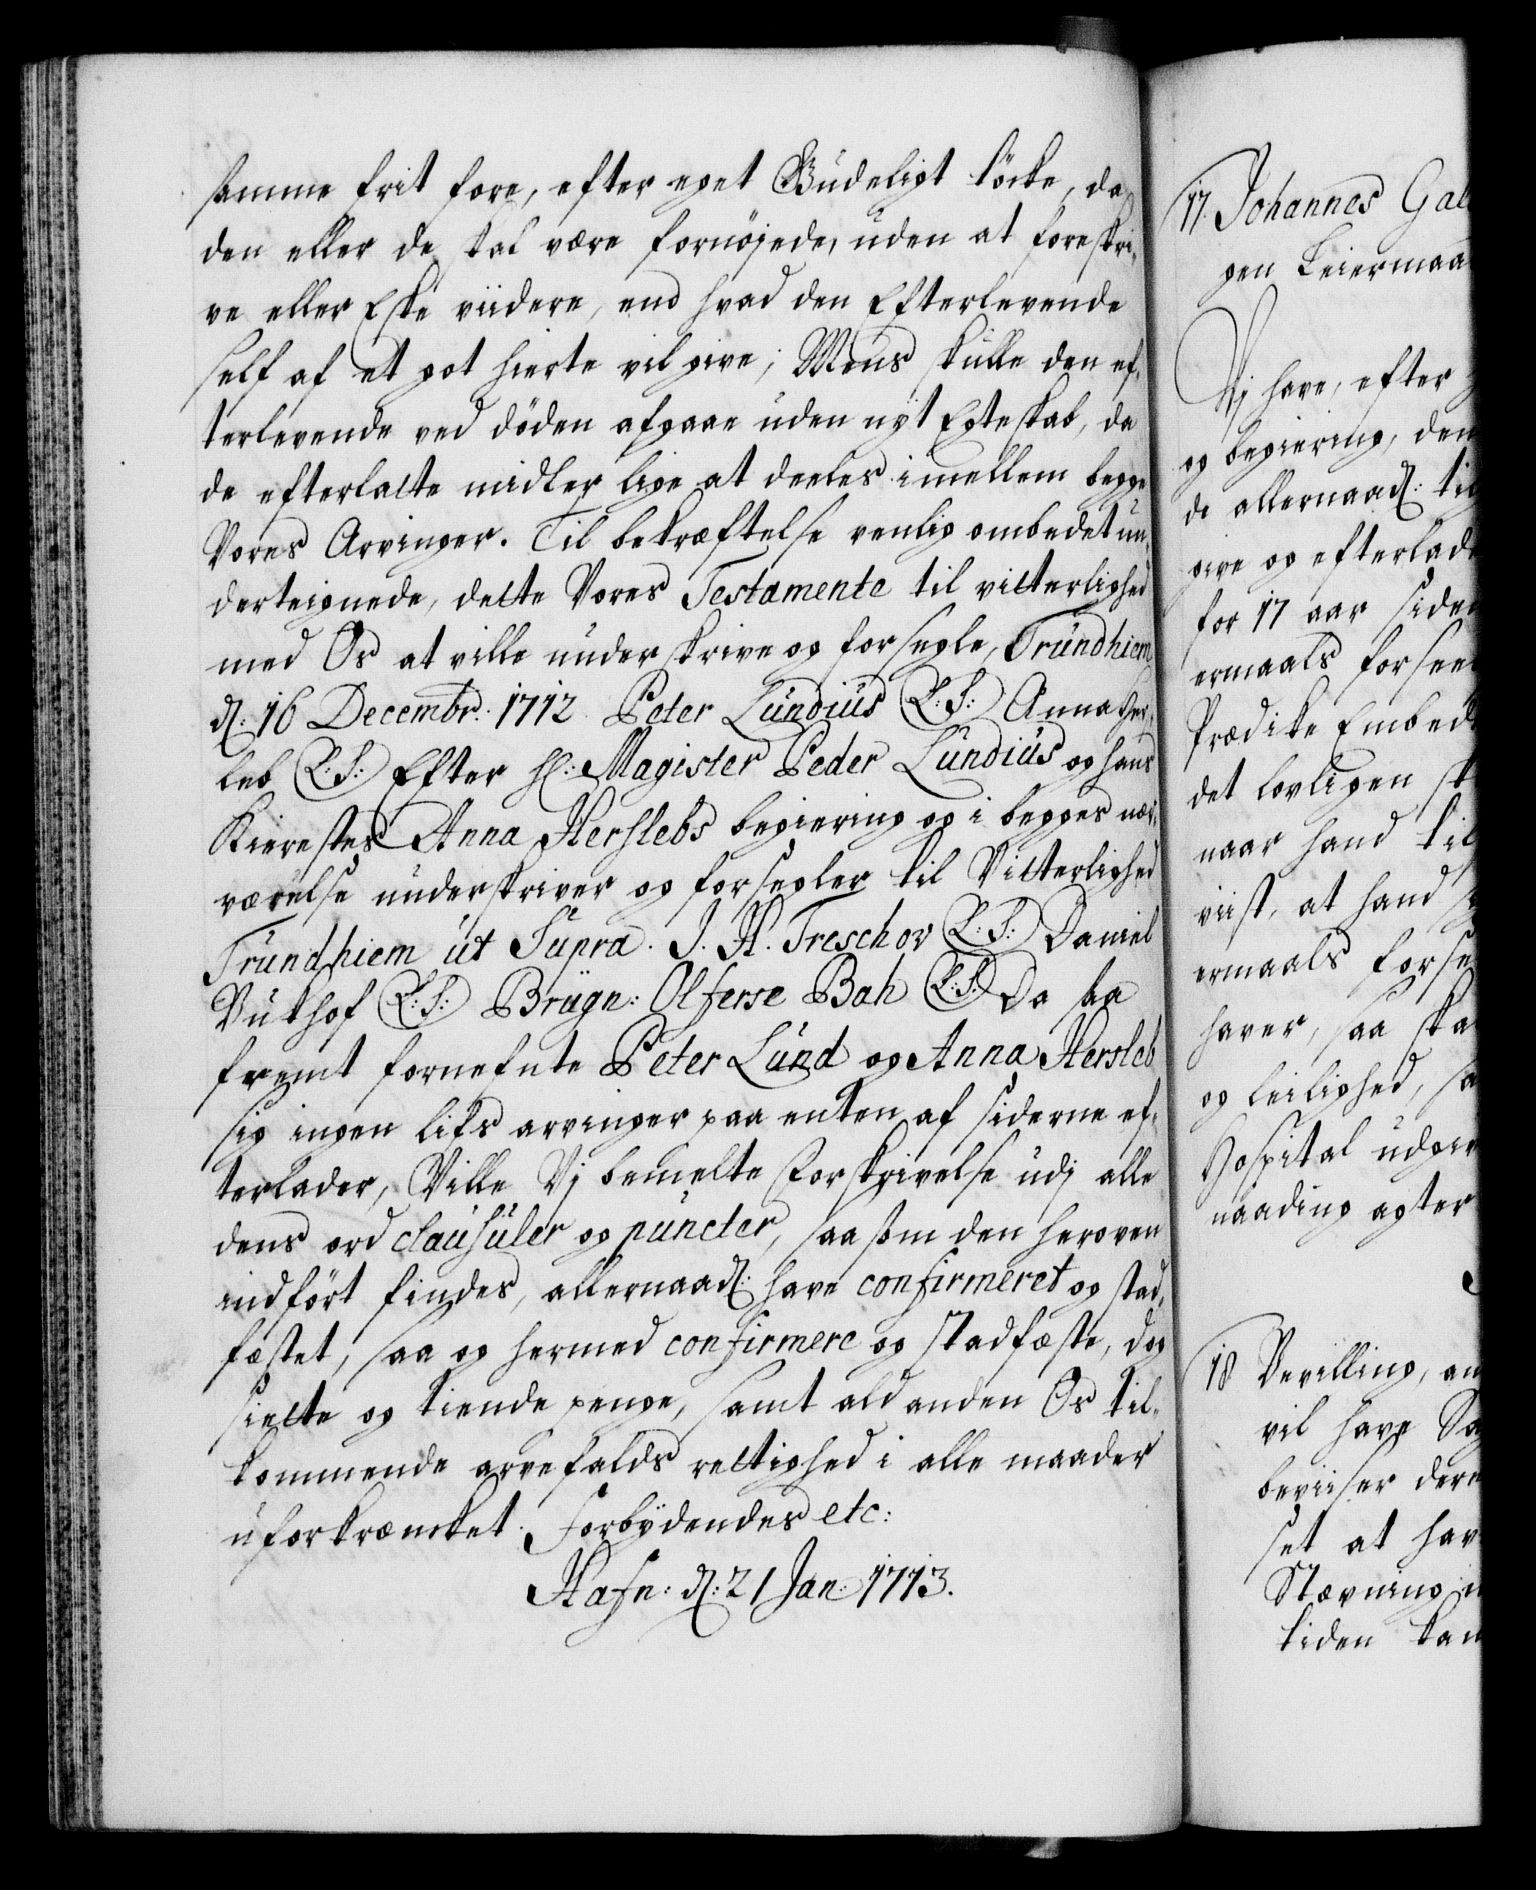 samme frit fore, efter eget Gudeligt töcke, da
den eller de skal være fornöjede, uden at foreskri-
ve eller Eske viidere, end hvad den Efterlevende
self af et got hierte vil give; Mens skulle den ef-
terlevende ved döden afgaae uden nyt Egteskab, da
de efterlatte midler lige at deeles imellem begge
Vores Arvinger. Til bekræftelse venlig ombedet un-
derteignede, dette Vores Testamente til vitterlighed
med Os at ville underskrive og forsegle, Trundhiem
d: 16 Decembr: 1712. Peter Lundius (L:S:) Anna Her-
leb (L:S:) Efter H: Magister Peder Lundius og hans
Kierestes Anna Herslebs begiering og i begges nær-
værelse underskriver og forsegler til Vitterlighed
Trundhiem ut Supra. J. H. Treschov (L:S:) Daniel
Vukhof (L:S:) Brügn: Olferse Bah (L:S:) Da saa
fremt fornefnte Peter Lund og Anna Hersleb
sig ingen lifs arvinger paa enten af siderne ef-
terlader, Ville Vj bemelte Forskrivelse udj alle
dens ord clausuler og puncter, saasom den heroven
indfört findes, allernaad: have confirmeret og stad-
fæstet, saa og hermed confirmere og stadfæste, dog
sielte og tiende penge, samt ald anden Os til-
kommende arvefalds rettighed i alle maader
uforkræncket. Forbydendes etc:
Hafn: d: 21 Jan: 1713.
17. Johannes Gal
gen Leiermaa
Vj have, efter
og begiering, den
de allernaad: til
give og efterlade
for 17 aar siden
ermaals forsee
Prædike Embed
det lovligen sk
naar hand til
viist, at hand
ermaals forse
haver, saa ska
og leilighed, sa
Hospital udgiv
naading agter
18 Bevilling, an
vil have Sag
beviiser der
set at hav
Stævning
tiden kan